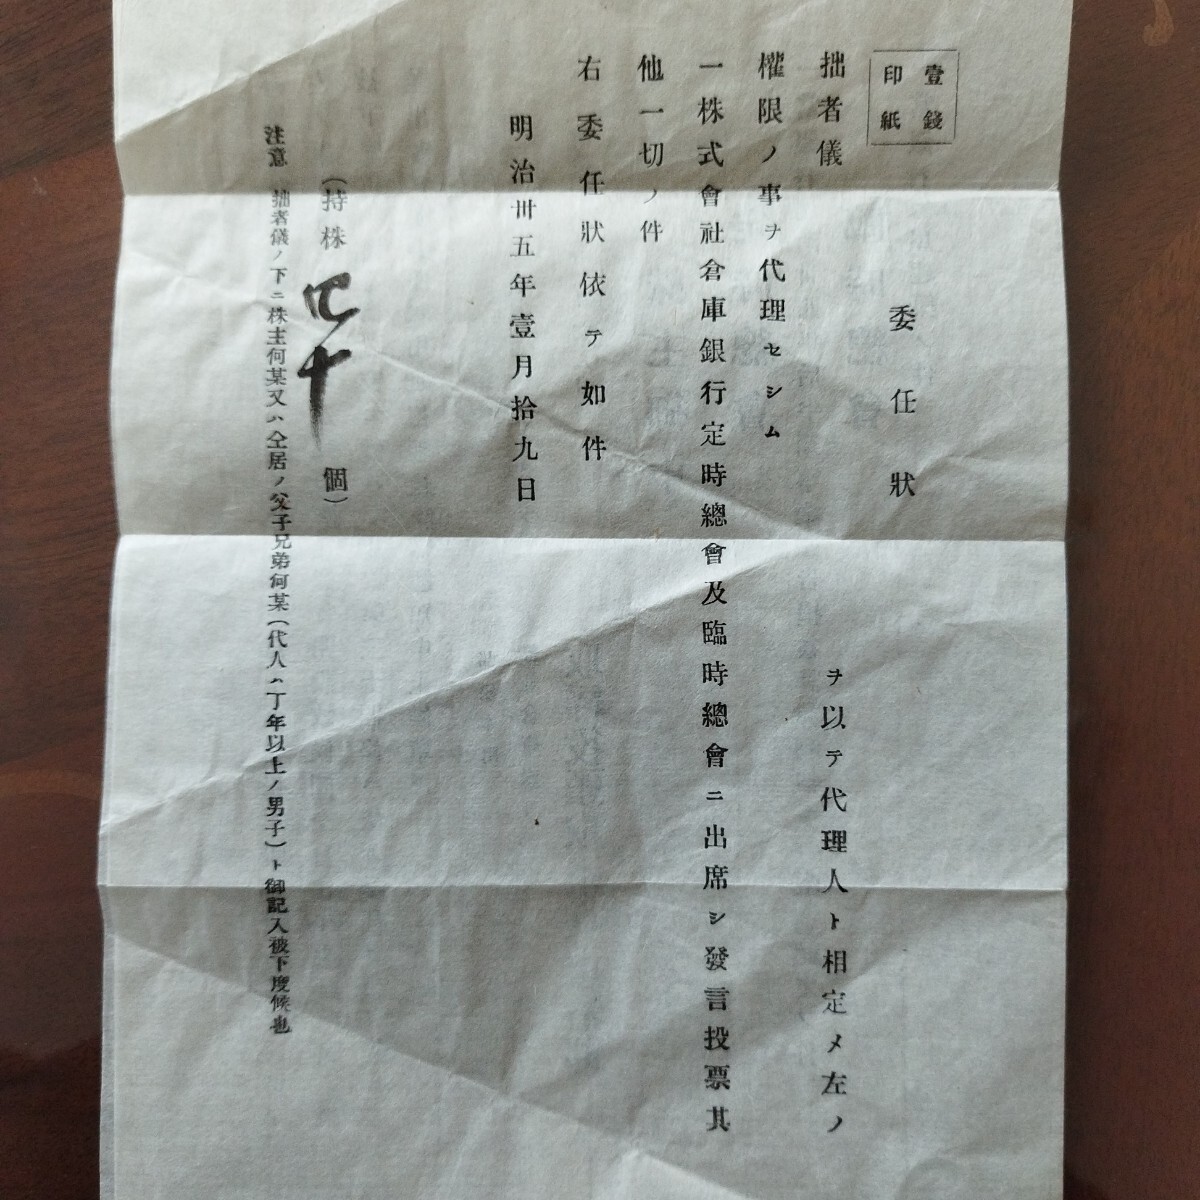 壹錢
印紙
委任狀
拙者儀　ヲ以テ代理人ト相定メ左ノ
權限ノ事ヲ代理セシム
一株式會社倉庫銀行定時總會及臨時總會ニ出席シ發言投票其
他一切ノ件
右委任狀依テ如件
明治卅五年壹月拾九日
（持株 四十 個）
注意 拙者儀ノ下ニ株主何某又ハ仝居ノ父子兄弟何某（代人ハ丁年以上ノ男子）ト御記入被下度候也